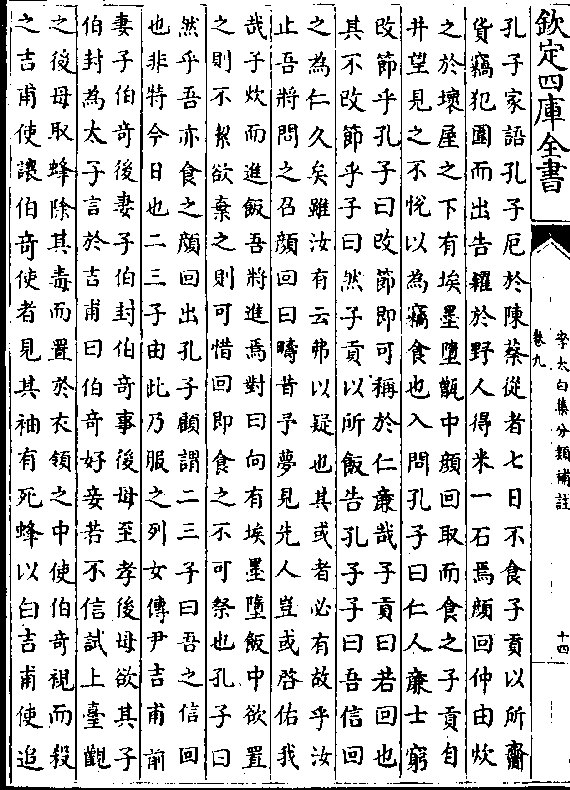 欽定四庫全書
李太白集分類補註
卷九
十四
孔子家語孔子厄於陳蔡從者七日不食子貢以所齎
貨竊犯圍而出告糴於野人得米一石焉顔回仲由炊
之於壞屋之下有埃墨墮甑中顔回取而食之子貢自
井望見之不悅以為竊食也入問孔子曰仁人廉士窮
改節乎孔子曰改節即可稱於仁廉哉子貢曰若回也
其不改節乎子曰然子貢以所飯告孔子子曰吾信回
之為仁久矣雖汝有云弗以疑也其或者必有故乎汝
止吾將問之召顔回曰疇昔予夢見先人豈或啓佑我
哉子炊而進飯吾將進焉對曰向有埃墨墮飯中欲置
之則不潔欲棄之則可惜回即食之不可祭也孔子曰
然乎吾亦食之顔回出孔子顧謂二三子曰吾之信回
也非特今日也二三子由此乃服之列女傳尹吉甫前
妻子伯奇後妻子伯封伯奇事後母至孝後母欲其子
伯封為太子言於吉甫曰伯奇好妾若不信試上臺觀
之後母取蜂除其毒而置於衣領之中使伯奇視而殺
之吉甫使讓伯奇使者見其袖有死蜂以白吉甫使追